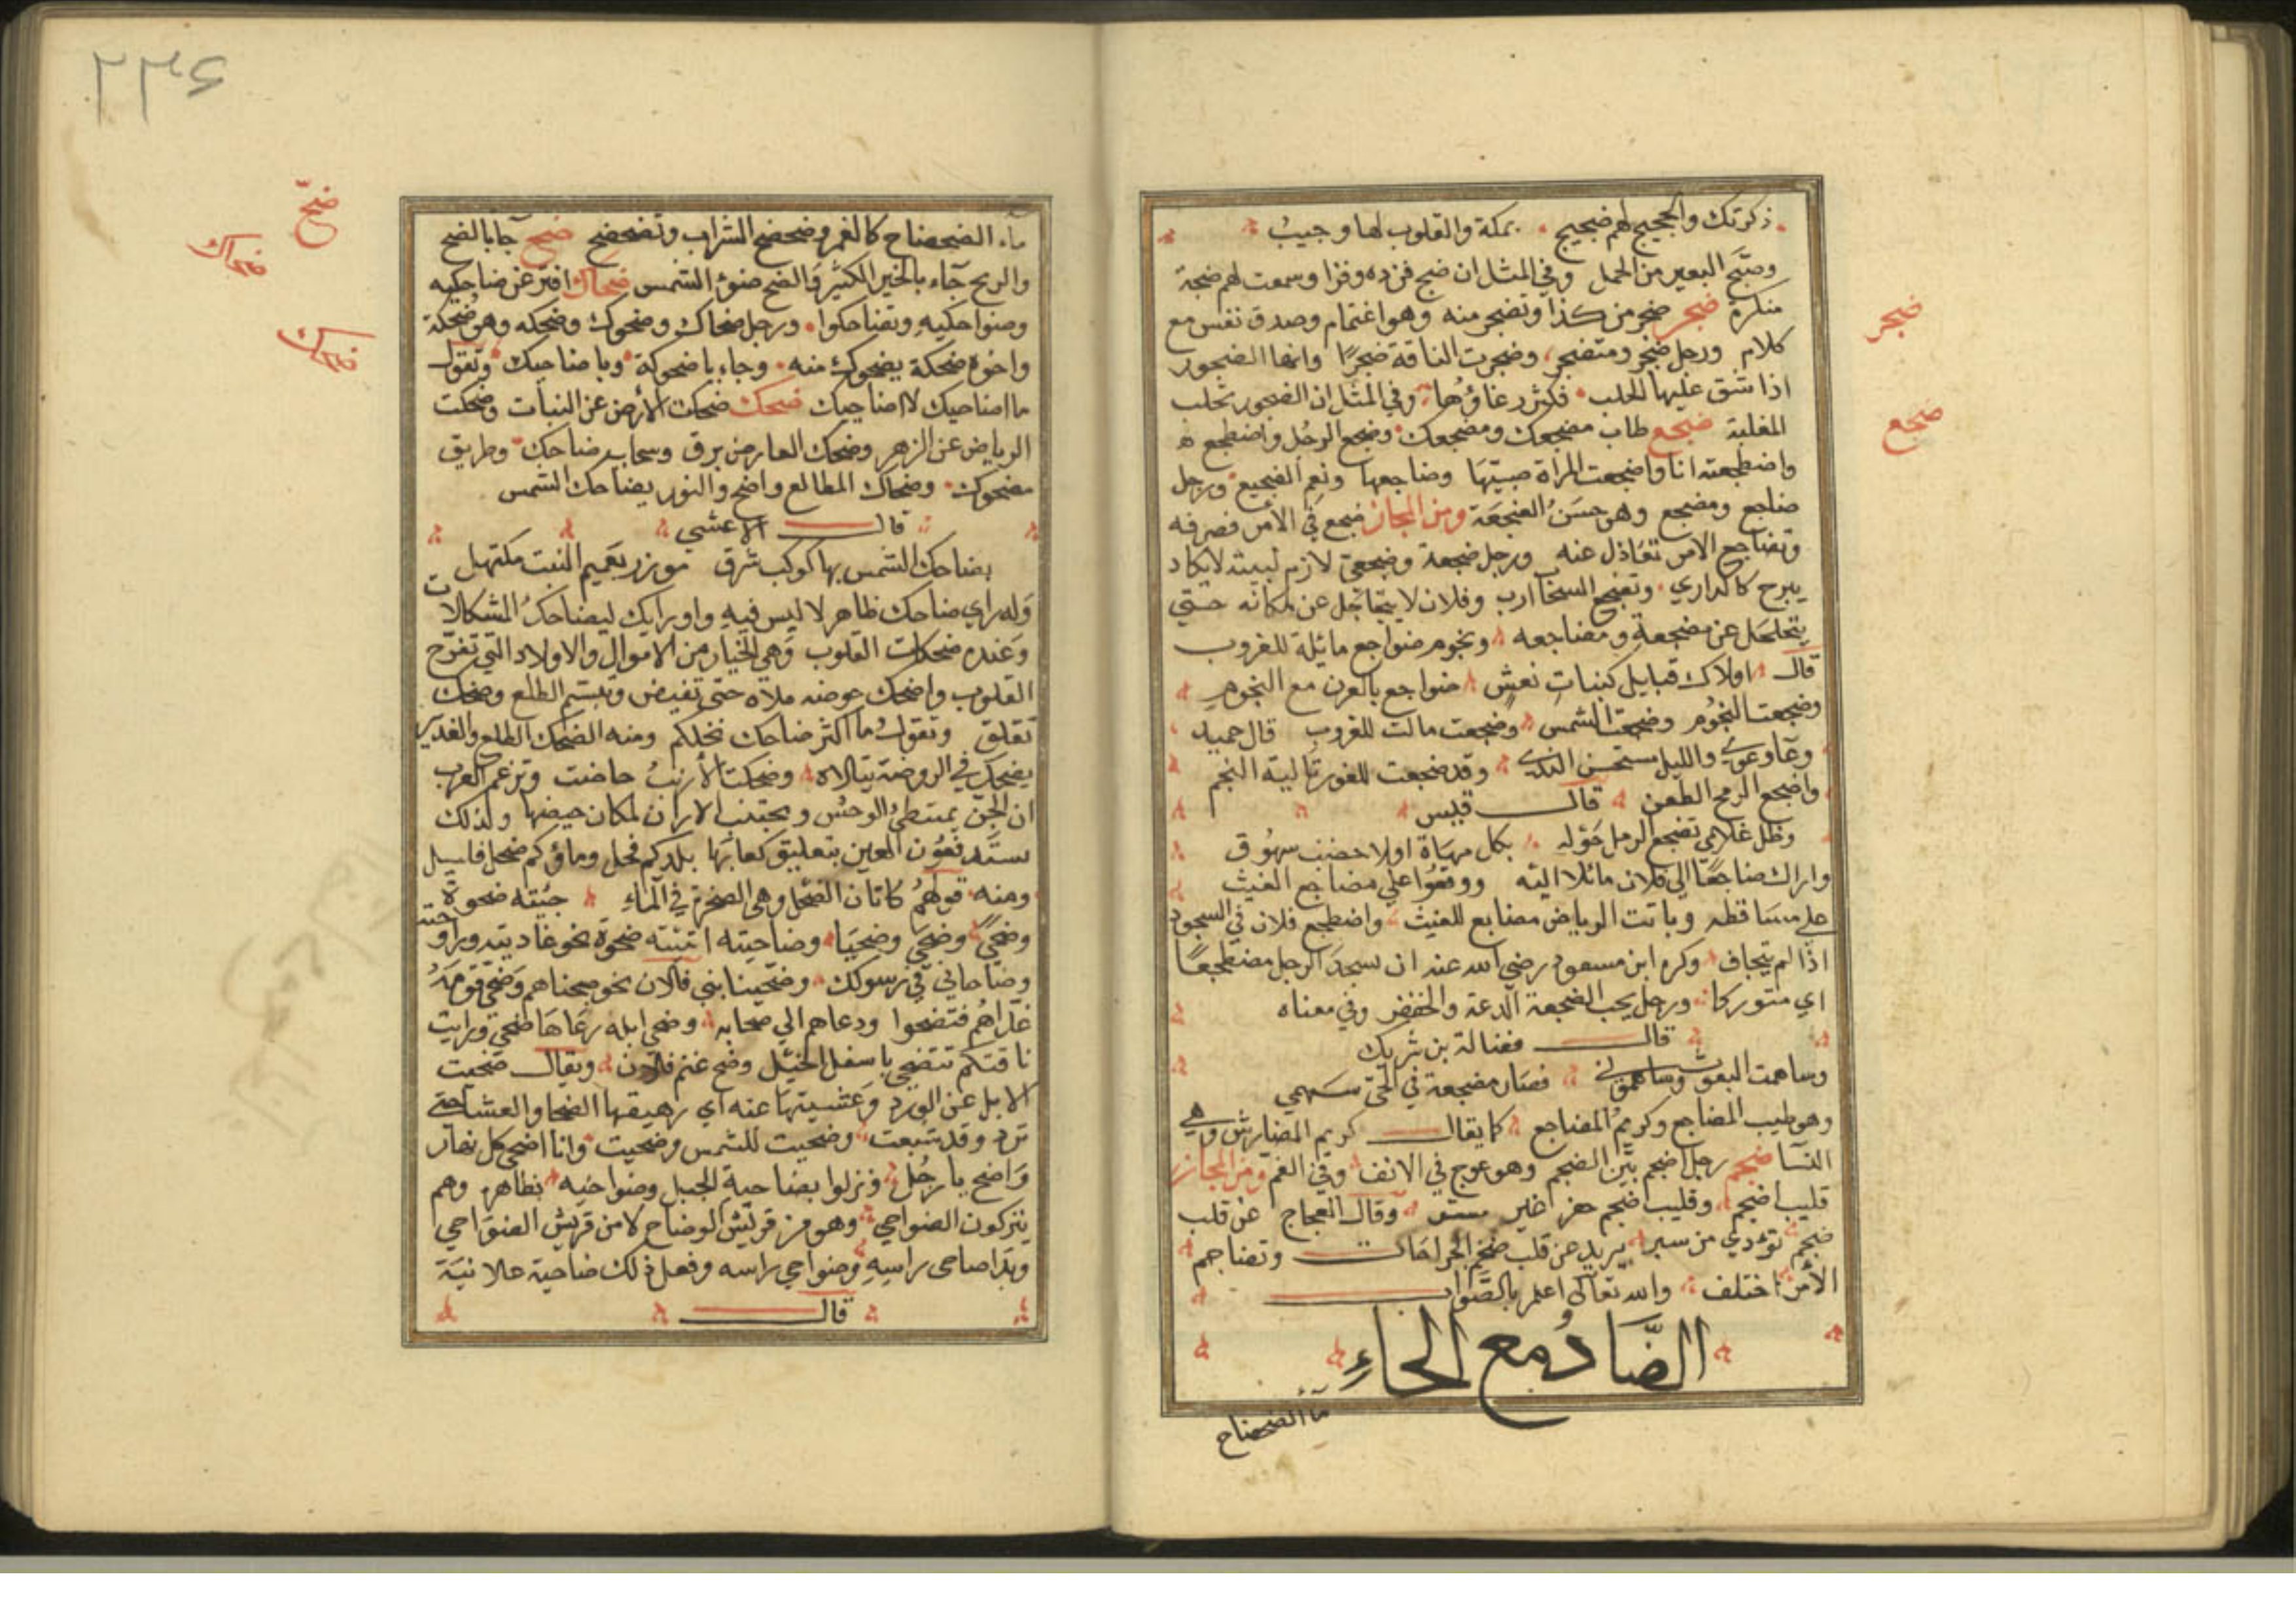 ذكرتك والحجيج لهم ضجيج بمكة والقلوب لها وجيب
وضجّ البعير من الحمل وفي المثل ان ضج فزده وقرا وسمعت لهم ضجة
منكرة ضجر ضجر من كذا وتضجر منه وهو اغتمام وضيق نفس مع
كلام ورجل ضجر ومتضجر وضجرت الناقة ضجرًا وانها الضجور
اذا شق عليها الحلب فكثر رغاؤها وفي المثل ان الضجور تحلب
المغلبة ضجع طاب مضجعك ومضجعك وضجع الرجل واضطجع
واضطجعته انا واضجعت المراة صبيتها وضاجعها ونعم الضجيع ورجل
ضاجع ومضجع وهو حسن الضجعة ومن المجاز ضجع في الأمر قصر فيه
وتضاجع الامر تغاذل عنه ورجل ضجعة وضجعيّ لازم لبيته لا يكاد
يبرح كالداري وتضجع السحاب ارب وفلان لا يتحلحل عن مكانه حتى
يتحلحل عن مضجعة ومضاجعه ونجوم ضواجع مائلة للغروب
قال اولاك قبايل كبنات نعش ضواجع بالغرن مع النجوم
وضجعت النجوم وضجعت الشمس وضجعت مالت للغروب قال حميد
وعاو عوى والليل مستحسن الندى وقد ضجعت للغور تالية النجم
واضجع الرمح الطعن قال قيس
وظل غلامي تضجع الرمل حوله بكل مهاة اولاحضنب سهوق
واراك ضاجعًا الي فلان مائلا اليه ووقعوا علي مضاجع الغيث
علي مساقطه وباتت الرياض مضابع للغيث واضطجع فلان في السجود
اذا لم يتجاف وكره ابن مسعود رضي الله عنه ان يسجد الرجل مضطجعًا
اي متوركا ورجل يحب الضجعة الدعة والخفض وفي معناه
قال فضالة بن شريك
وساهمت البعوث وساهموني فصار مضجعة في الحي سهمي
وهو طيب المضاجع وكريم المضاجع كما يقال كريم المفارش وهي
النسا ضجم رجل اضجم بيّن الضجم وهو عوج في الانف وفي الفم ومن المجاز
قليب اضجم وقليب اضجم وقال العجاج عن قلب
ضجم تؤدي من سبر يريد عن قلب ضخم الجراحات وتضاجم
الأمر اختلف والله تعالى اعلم بالصواب
الضّاد مع الحاءِ
ماء الضحضاح
ضجر
ضجع
ماء الضحضاح كالغمر وضحضح الشراب وتضحضح ضحح جا بالضح
والريح جاء بالخير الكثير والضح ضوء الشمس ضحاك افتر عن ضاحكيه
وضواحكيهِ وتضاحكوا ورجل ضحاك وضحوك وضحكه وهو ضحكة
واخوه ضحكة يضحوك منه وجاء باضحوكة وبا ضاحيك وتقول
ما اضاحيك لا اضاحيك ضحك ضحكت الأرض عن النبات وضحكت
الرياض عن الزهر وضحك العارض برق وسحاب ضاحك وطريق
مضحوك وضحاك المطالع واضح والنور يضاحك الشمس
قال الاعشي
يضاحك الشمس بها كوكب شرق موزر بعميم النبت مكتهل
وله راي ضاحك ظاهر لا لبس فيه واو رايك ليضاحك المشكلات
وعنده ضحكات القلوب وهي الخيار من الاموال والاولاد التي تفرح
القلوب واضحك حوضه ملاه حتى تفيض وتبسّم الطلع وضحك
تفلق وتقول ما اكثر ضاحك نخلكم ومنه الضحك الطلع والغدير
يضحك في الروضة يتلالاه وضحكت الأرنب حاضت وتزعم العرب
ان الجن يمتطي الوحش ويجتنب الاران لمكان حيضها ولذلك
يستدفعون العين بتعليق كعابها بلدكم فحل وماؤكم ضحل
ومنه قولهم كاتان الضحل وهي الصخرة في الماءِ جئته ضحوة
وضحيً وضحيَ وضحيا وضاحيته اتيته ضحوة نحو غاديته وراوحته
وضاحاني في رسولك وضحينا بني فلان نحو صبحناهم وضحي قومه
غدّاهم فتضحوا ودعاهم الي ضحايه وضحى ابله رعاها ضحى ورايت
ناقتكم تتضحي باسفل الخيّل وضح غنم فلان ويقال ضحيت
الابل عن الورد وعشيتها عنه اي رعيتها الضحا والعشا حتى
ترد وقد شبعت وضحيت للشمس وضحيت وانا اضحي كل نهار
واضح يا رجُل ونزلوا بضاحية الجبل وضواحيه بظاهره وهم
ينزكون الضواحي وهو من قريش الوضاح لا من قريش الضواحي
وبدا ضاحى راسهِ وضواحي راسه وفعل ذلك ضاحية علانيَة
قال
ضحّ
ضحاك
ضحك
٢٣٤